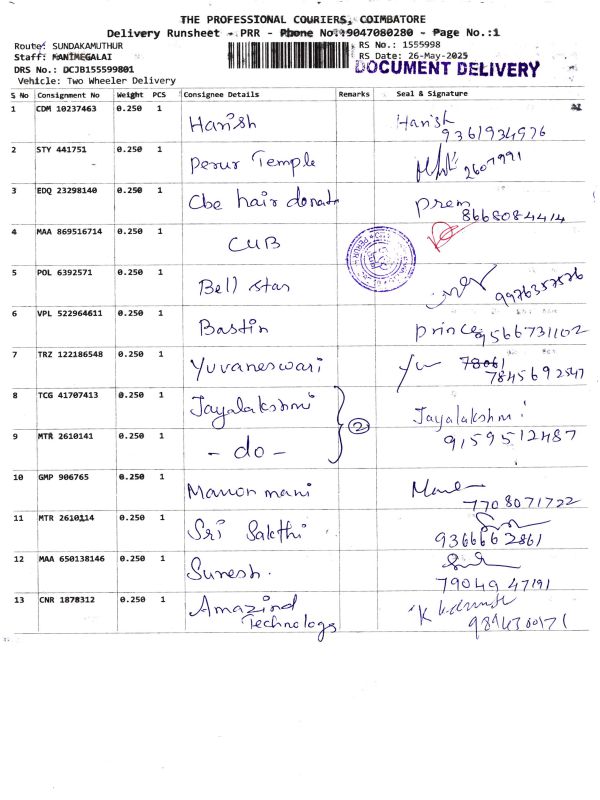 THE PROFESSIONAL COURIERS, COIMBATORE
Delivery Runsheet - PRR - Phone No:19047080280 - Page No.:1
Route: SUNDAKAMUTHUR
RS No.: 1555998
Staff: MANIMEGALAI
RS Date: 26-May-2025
DRS No.: DCJB155599801
DOCUMENT DELIVERY
Vehicle: Two Wheeler Delivery
S No Consignment No Weight PCS Consignee Details Remarks Seal & Signature
1 CDM 10237463 0.250 1 Harish Harish
9361934976
2 STY 441751 0.250 1 Perur Temple 2607991
3 EDQ 23298140 0.250 1 Cbe hair donat Prem
8668084414
4 MAA 869516714 0.250 1 CUB
5 POL 6392571 0.250 1 Bell star 9976357576
6 VPL 522964611 0.250 1 Bastin Prince 9566731102
7 TRZ 122186548 0.250 1 Yuvaneswari Yu 78061
7845692547
8 TCG 41707413 0.250 1 Jayalakshmi Jayalakshmi
9 MTR 2610141 0.250 1 - do - 2 9159512487
10 GMP 906765 0.250 1 Manon mani
7708071722
11 MTR 2610114 0.250 1 Sri Sakthi
9366662861
12 MAA 650138146 0.250 1 Suresh.
7904947191
13 CNR 1878312 0.250 1 Amazind
Technology